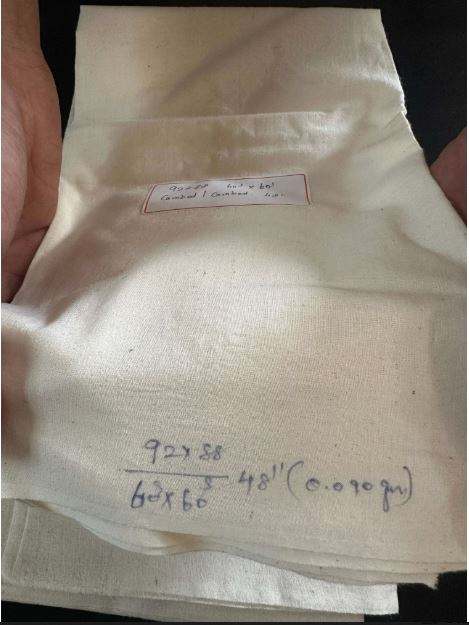 92×88 60ˢ × 60ˢ
Combed / Combed 48"
92×88
60ˢ×60ˢ 48" (0.090 gm)